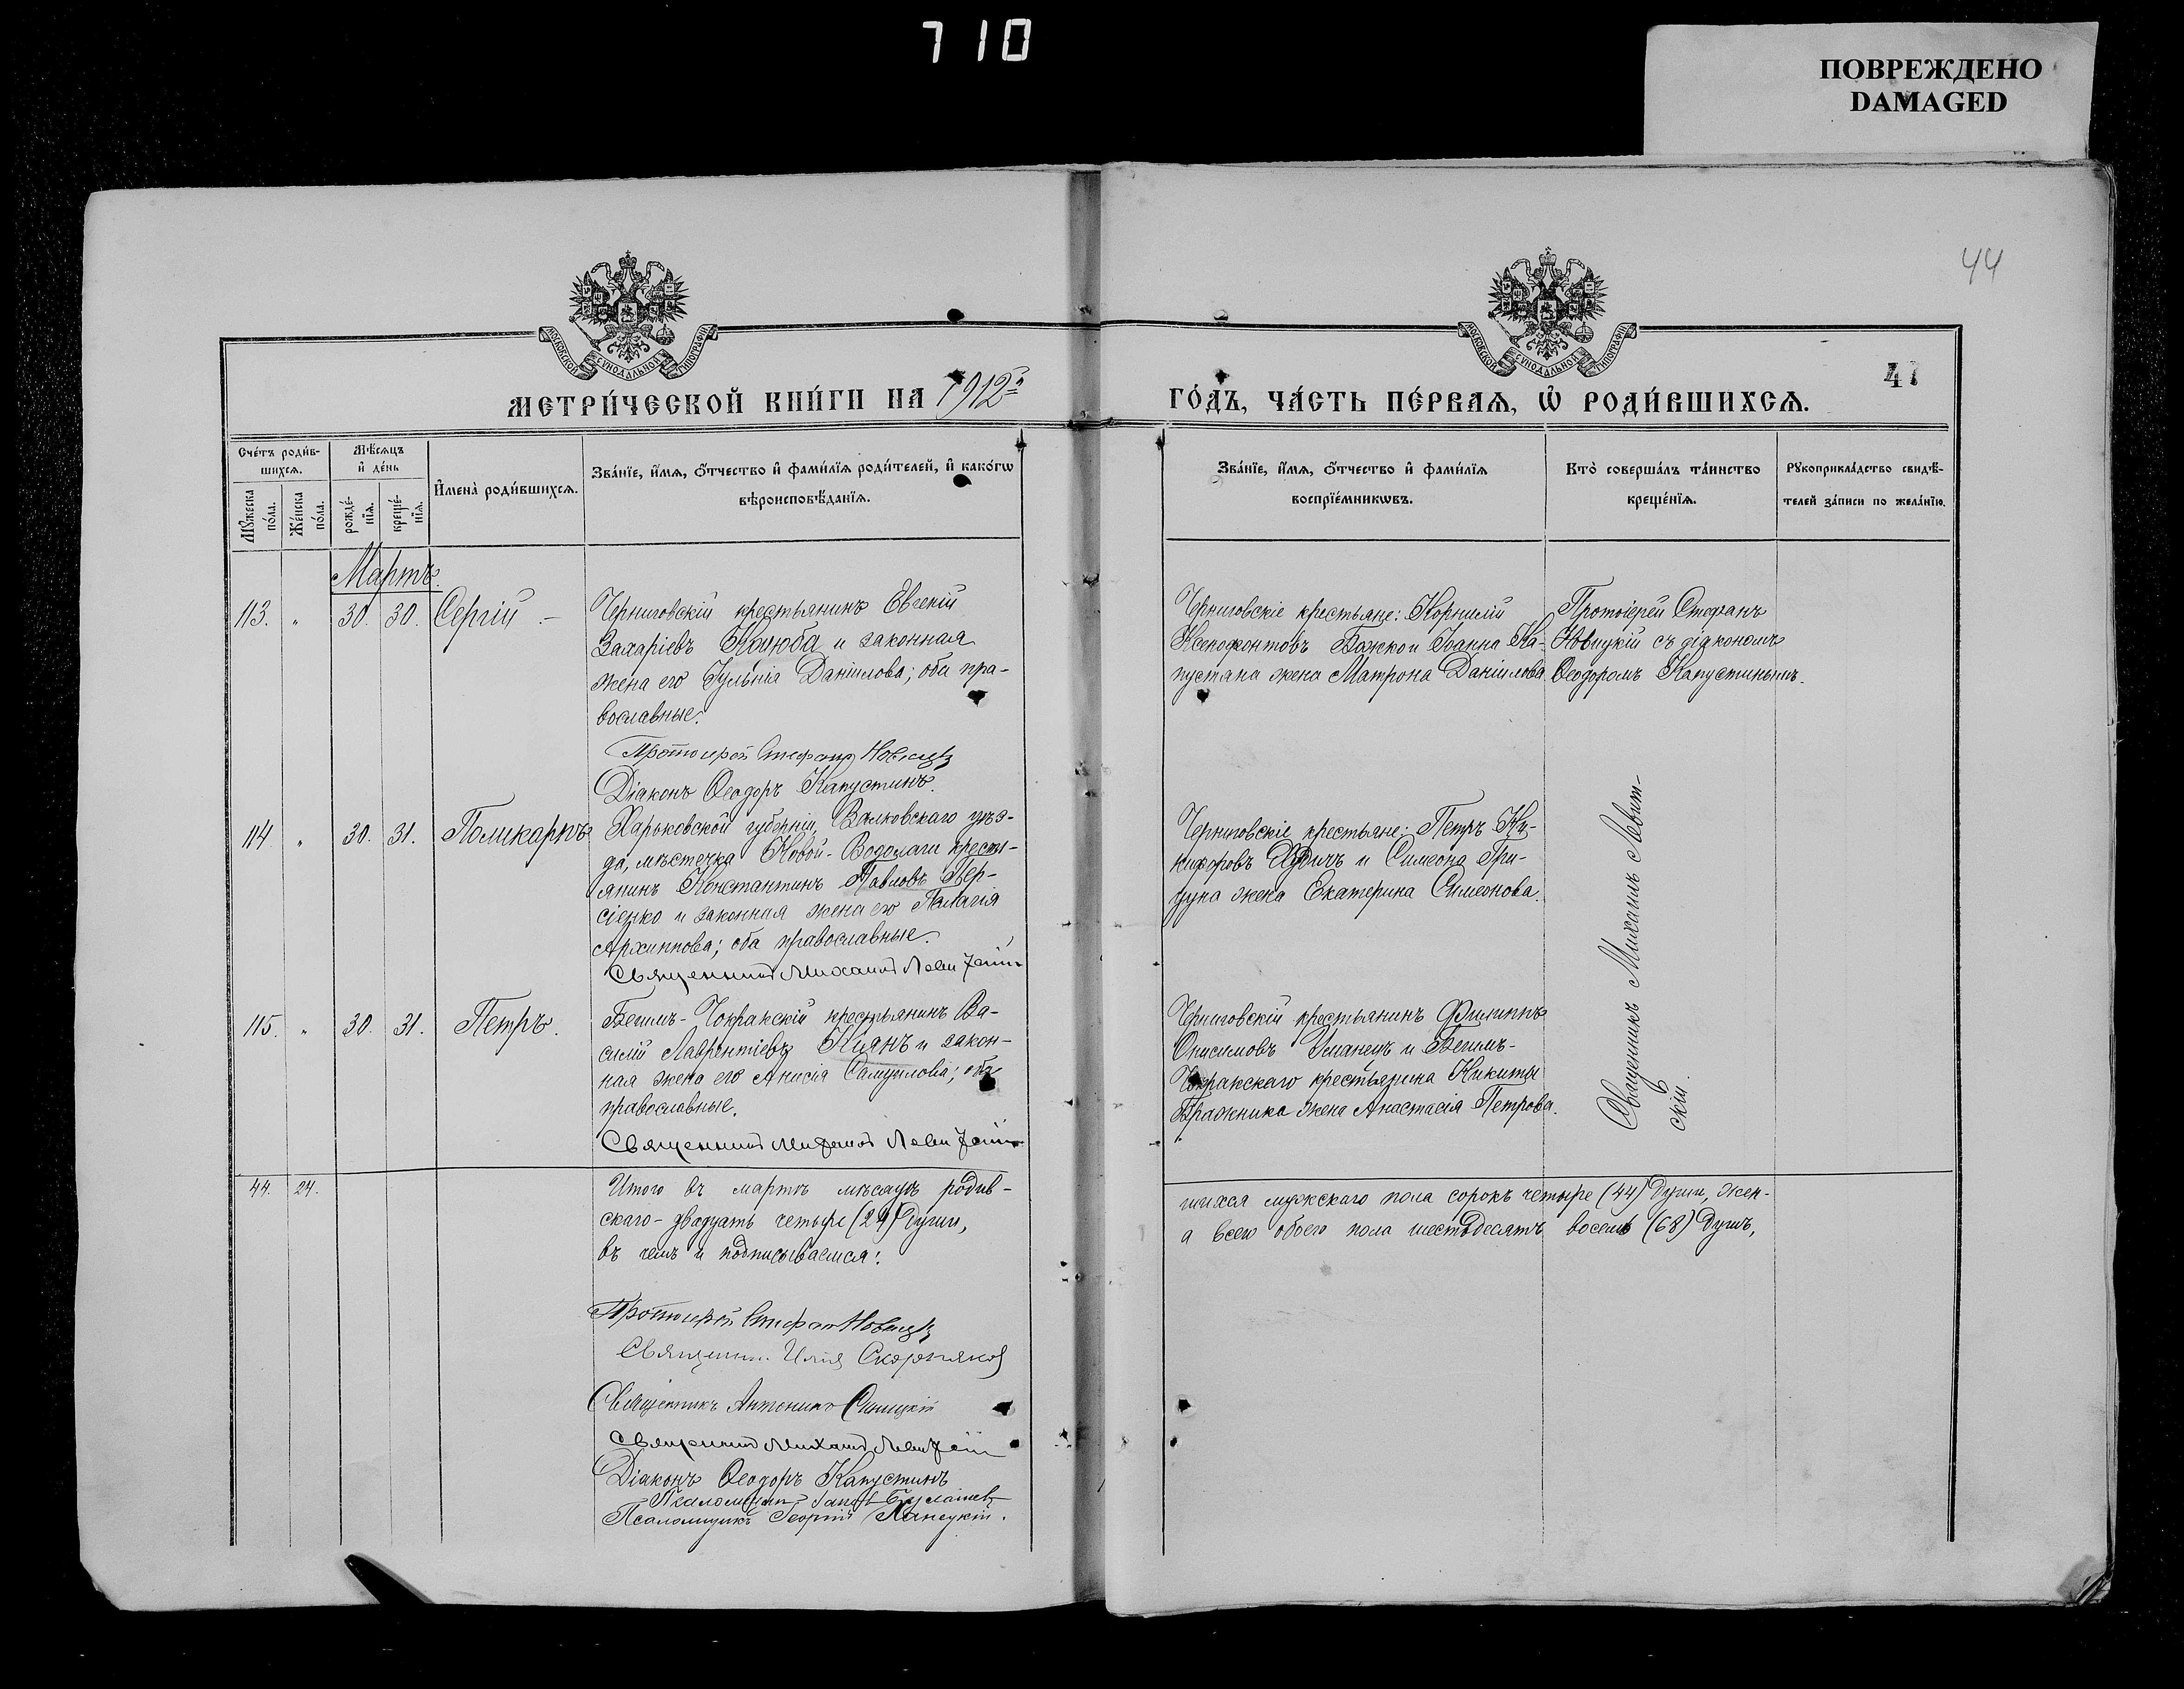 710
ПОВРЕЖДЕНО
DAMAGED
44
47
МОСКОВСКОЙ СѴНОДАЛЬНОЙ ТИПОГРАФІИ
МОСКОВСКОЙ СѴНОДАЛЬНОЙ ТИПОГРАФІИ
МЕТРИ́ЧЕСКОЙ КНИ́ГИ НА 1912й
ГО́ДЪ, ЧА́СТЬ ПЕ́РВАѦ, Ѡ҆ РОДИ́ВШИХСѦ.
Сче́тъ роди́в-
шихсѧ.
Мꙋ́жеска по́ла.
Же́нска по́ла.
Мѣ́сѧцъ
и҆ де́нь
рожде́-
нїѧ.
креще́-
нїѧ.
И҆мена̀ роди́вшихсѧ.
Зва́нїе, и҆́мѧ, ѻ҆́тчество и҆ фами́лїѧ роди́телей, и҆ како́гѡ
вѣроисповѣ́данїѧ.
Зва́нїе, и҆́мѧ, ѻ҆́тчество и҆ фами́лїѧ
воспрїе́мникѡвъ.
Кто̀ соверша́лъ та́инство
креще́нїѧ.
Рꙋкоприкла́дство свидѣ́-
телей за́писи по жела́нїю.
Мартъ.
113. " 30. 30. Сергій. —
Черниговскій крестьянинъ Евгеній
Захаріевъ и законная
жена его Іульнія Даніилова; оба пра-
вославные.
Протоіерей Стефанъ Новицкій
Діаконъ Ѳеодоръ Капустинъ.
Черниговскіе крестьяне: Корнилій
Ксенофонтовъ Божко и Іоанна Ка-
пустяна жена Матрона Даніилова
Протоіерей Стефанъ
Новицкій съ діакономъ
Ѳеодоромъ Капустинымъ.
114. " 30. 31. Поликарпъ
Харьковской губерніи, Валковскаго уѣз-
да, мѣстечка Новой-Водолаги кресть-
янинъ Константинъ Павловъ
и законная жена его Пелагія
Архиппова; оба православные.
Священникъ Михаилъ Левитскій
Черниговскіе крестьяне: Петръ Ни-
кифоровъ и Симеона Гри-
цуна жена Екатерина Симеонова.
Священникъ Михаилъ Левит-
скій.
115. " 30. 31. Петръ.
Бегимъ-Чокракскій крестьянинъ Ва-
силій Лаврентіевъ Киянъ и закон-
ная жена его Анисія Самуилова; оба
православные.
Священникъ Михаилъ Левитскій
Черниговскій крестьянинъ Филиппъ
Онисимовъ Уманецъ и Бегимъ-
Чокракскаго крестьянина Никиты
Бражника жена Анастасія Петрова.
44. 24.
Итого въ мартѣ мѣсяцѣ родив-
шихся мужскаго пола сорокъ четыре (44) души, жен-
скаго - двадцать четыре (24) души,
а всего обоего пола шестьдесятъ восемь (68) душъ,
въ чемъ и подписываемся:
Протоіерей Стефанъ Новицкій
Священн. Илія Скорняков
Священникъ Антонинъ Синицкій
Священникъ Михаилъ Левитскій
Діаконъ Ѳеодоръ Капустинъ
Псаломщикъ
Псаломщикъ Георгій